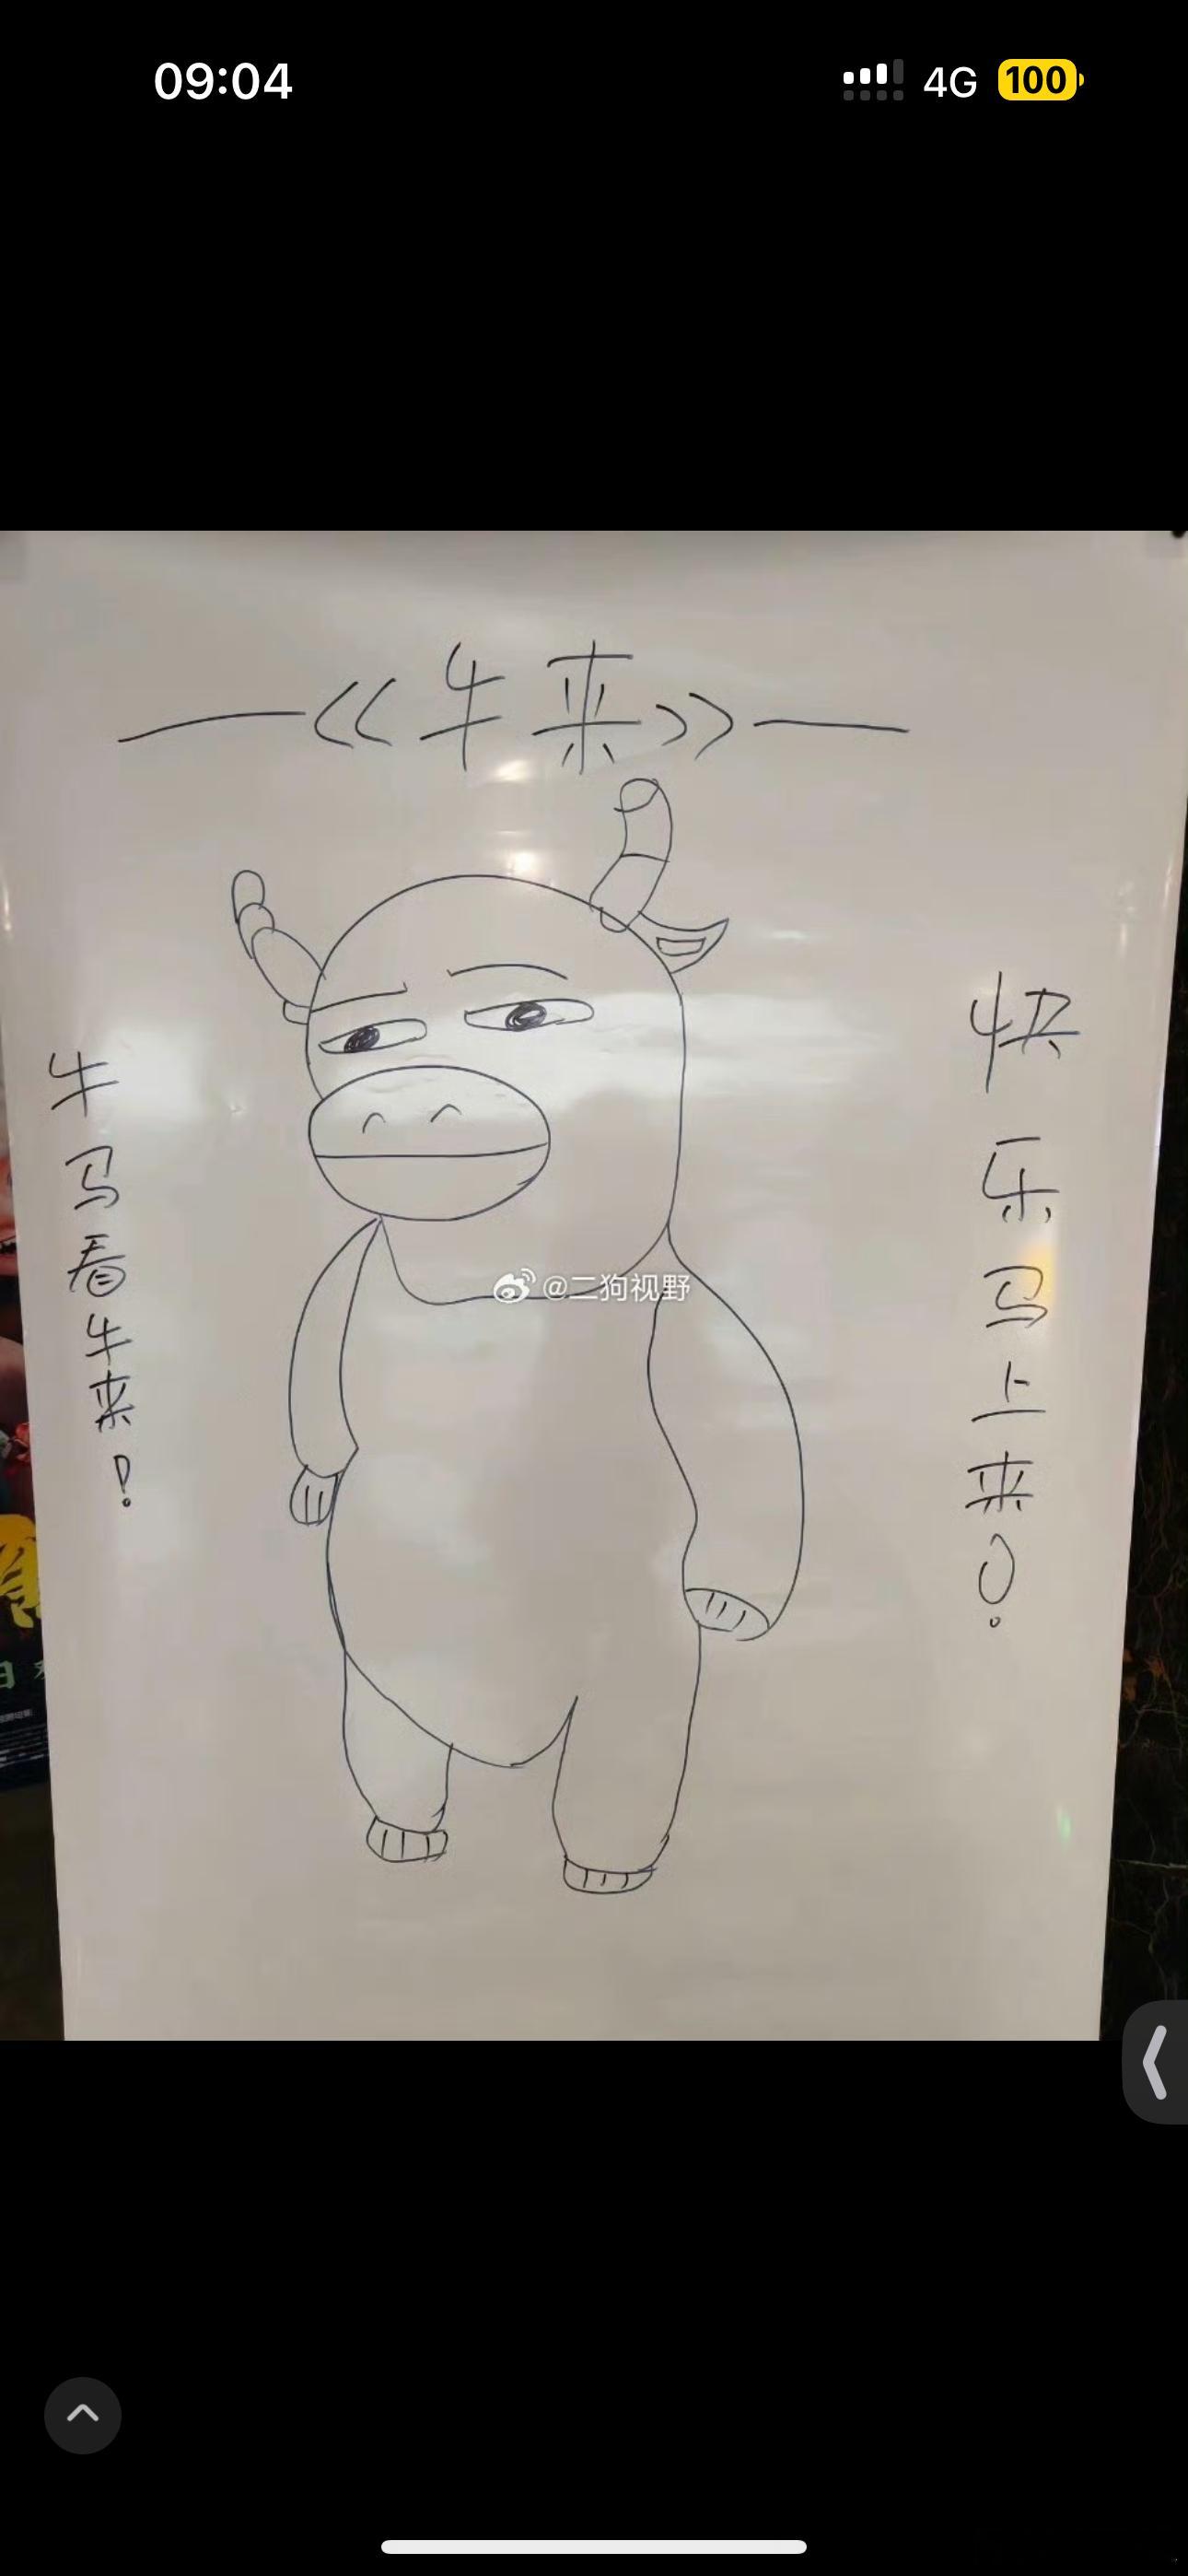 09:04
4G
100
——《牛来》——
牛马看牛来！
快乐马上来！
@二狗视野